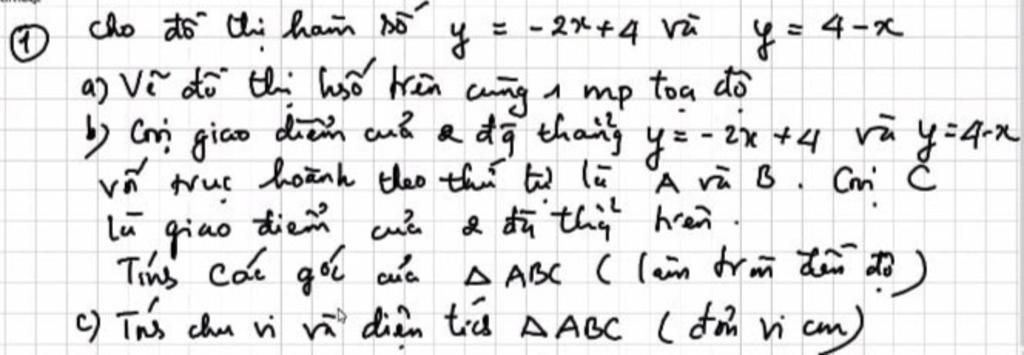 ① Cho đồ thị hàm số y = -2x+4 và y = 4-x
a) Vẽ đồ thị hsố trên cùng 1 mp toạ độ
b) Gọi giao điểm của 2 đg thẳng y = -2x +4 và y=4-x
với trục hoành theo thứ tự là A và B. Gọi C
là giao điểm của 2 đg thg trên.
Tính các góc của △ABC (làm tròn đến độ)
c) Tính chu vi và diện tích △ABC (đơn vi cm)